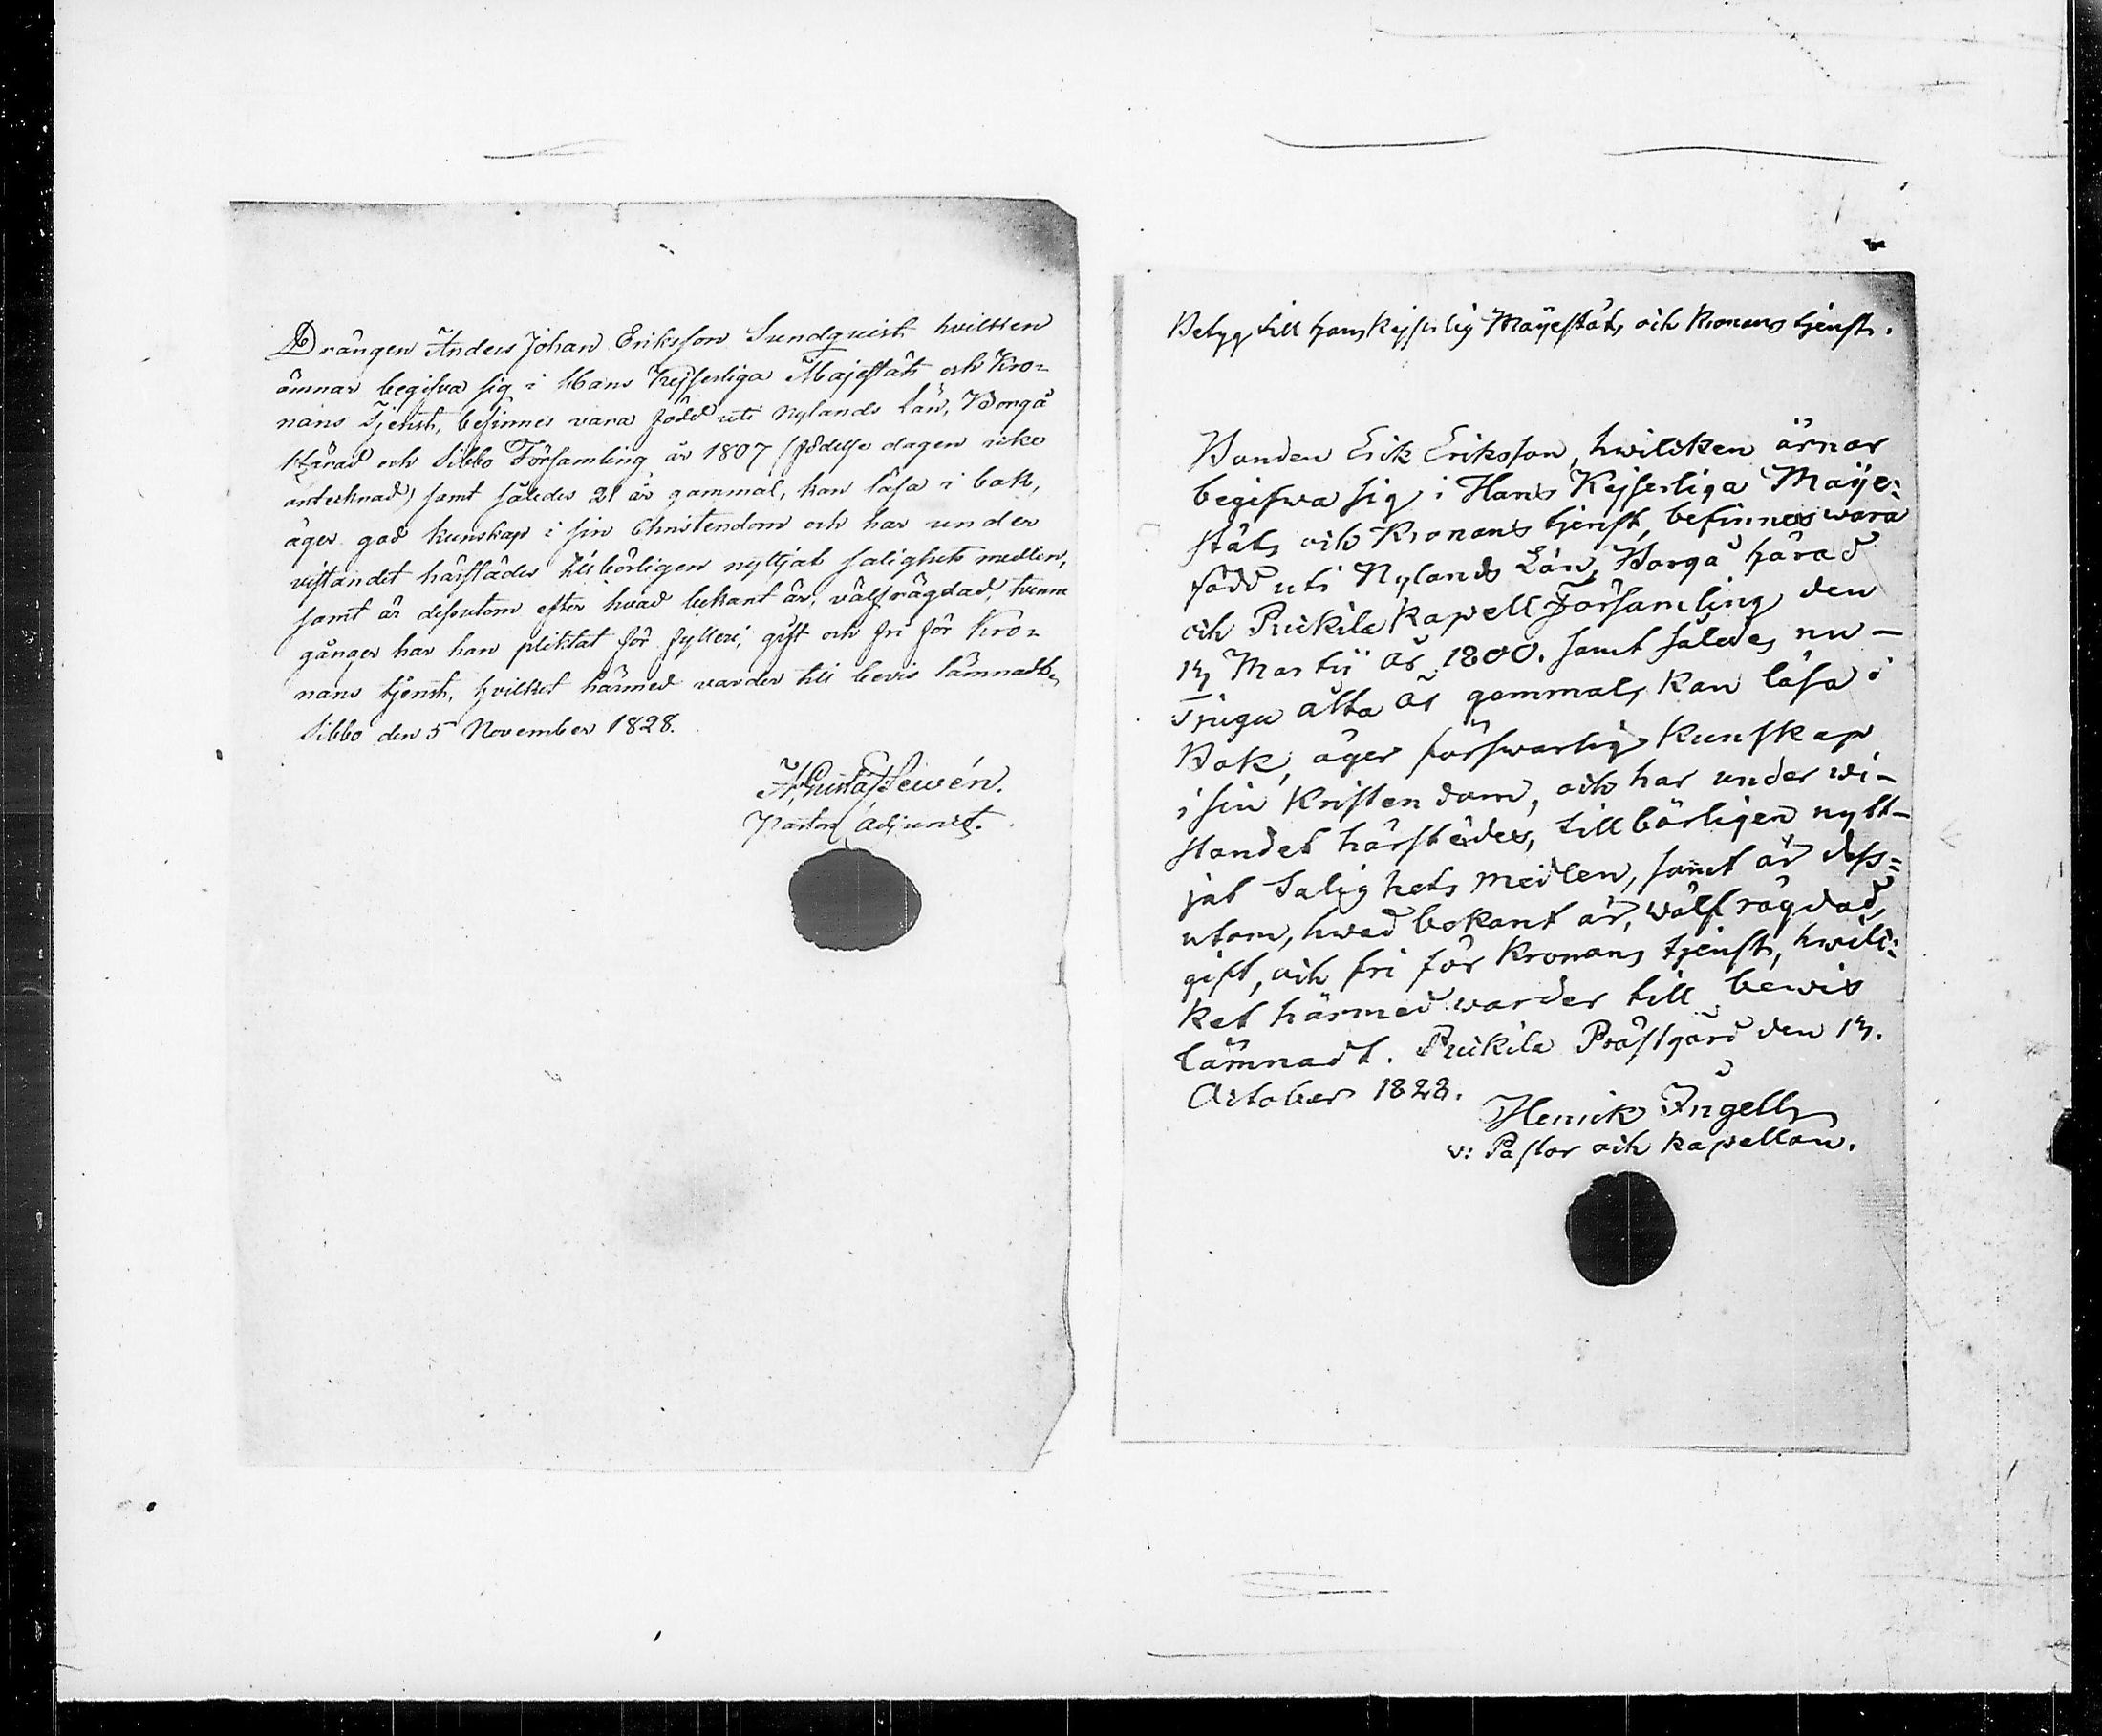 Drängen Anders Johan Eriksson Sundqvist hvilken
ämnar begifva sig i Hans Kejserliga Majestäts och Kro-
nans Tjenst, befinnes vara född uti Nylands Län, Borgå
Härad och Sibbo Församling år 1807 (födelse dagen icke
antecknad) samt således 21 år gammal, kan läsa i bok,
äger god kunskap i sin Christendom och har under
vistandet härstädes tillbörligen nyttjat salighets medlen,
samt är dessutom efter hvad bekant är, välfrägdad, tvenne
gånger har han pliktat för fylleri, gift och fri för Kro-
nans tjenst, hvilket härmed varder till bevis lämnadt,
Sibbo den 5 November 1828.
Gustaf
Pastors Adjunct.
Betyg till Hans Kejserlig Mayestäts och Kronans tjenst.
Bonden Erik Eriksson, hwilcken ärnar
begifwa sig i Hans Kejserliga Maye:
stäts och Kronans tjenst, befinnes wara
född uti Nylands Län, Borgå härad
och Puckila Kapell Församling den
17 Martij år 1800. samt således nu -
Tjugu åtta år gammal, kan läsa i
Bok, äger förswarlig Kunskap
i sin Kristendom, och har under wi-
standet härstädes, tillbörligen nytt-
jat Salighets medlen, samt är dess=
utom, hwad bekant är, wälfrägdad,
gift, och fri för Kronans tjenst, hwilc:
ket härmed warder till bewis
lämnadt. Puckila Prästgård den 17.
October 1828.
Henrik Ingell
v: Pastor och kapellan.